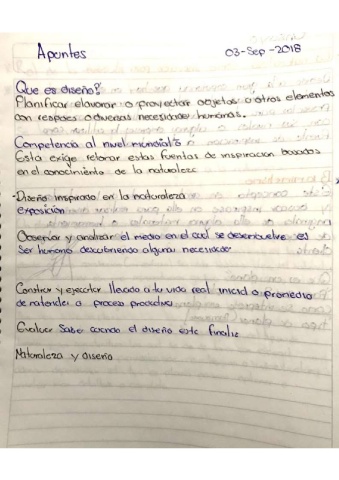 Apuntes 03-Sep-2018
Que es diseño?
Planificar elavorar o proyectar objetos o otros elementos
con respoes a diversas necesidades humanas.
Competencia al nivel mundial
Esta exige retomar estas fuentes de inspiración basados
en el conocimiento de la naturaleza
-Diseño inspirado en la naturaleza
exposición
Observar y analizar el medio en el cual se desenvuelve es
ser humano descubriendo algunas necesidades
Construir y ejecutar llevado a tu vida real inicio o promedio
de materiales a proceso productivo
Evaluar Saber cuando el diseño este finaliz
Naturaleza y diseño